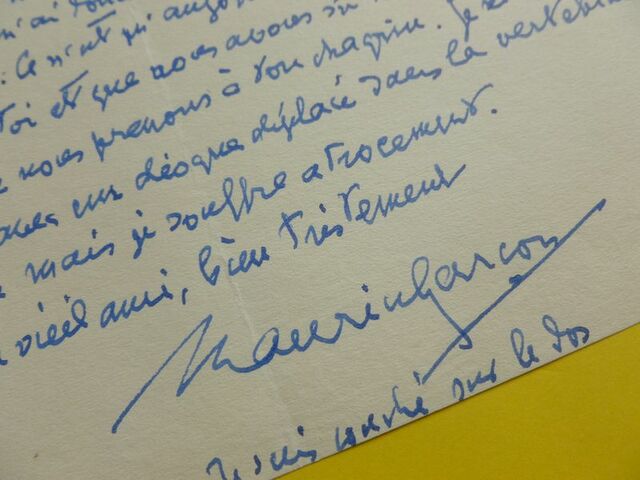 n'ai
: Ce n'est ni
toi et que nous avons
nous prenons à ton chagrin. Je
un disque déplacé dans la vertebr
mais je souffre atrocement.
vieil ami, bien tristement
Maurice Garçon
Je suis couché sur le dos